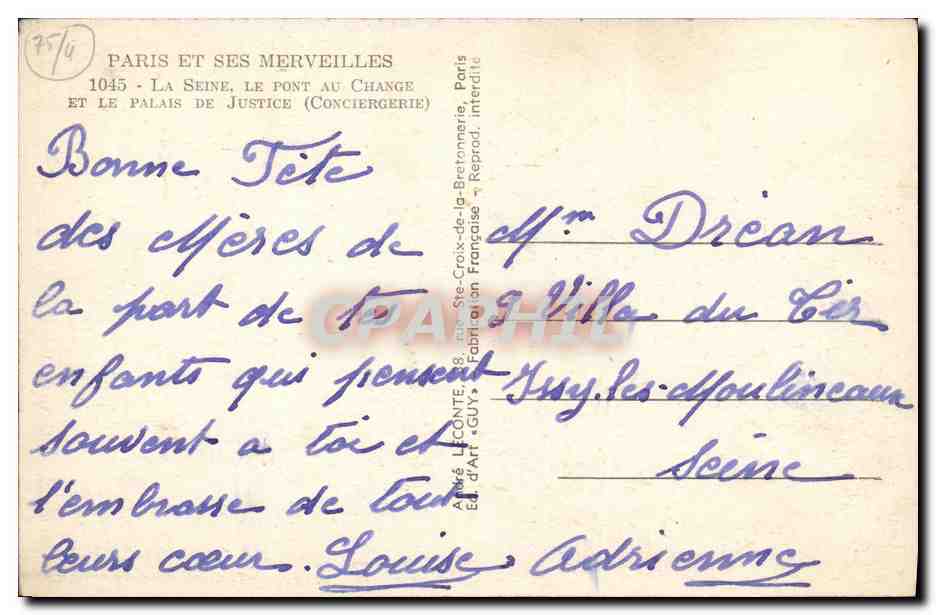 75/4
PARIS ET SES MERVEILLES
1045 - LA SEINE, LE PONT AU CHANGE
ET LE PALAIS DE JUSTICE (CONCIERGERIE)
Bonne Fête
des Mères de
la part de te
enfants qui pensent
souvent a toi et
t'embrasse de tout
leurs cœur. Louise Adrienne
André LECONTE, 38, rue Ste-Croix-de-la-Bretonnerie, Paris
Ed. d'Art «GUY» - Fabrication Française - Reprod. interdite
Mme Dréan
9 Villa du Cèr
Issy-les-Moulineaux
Seine
CPAPHIL